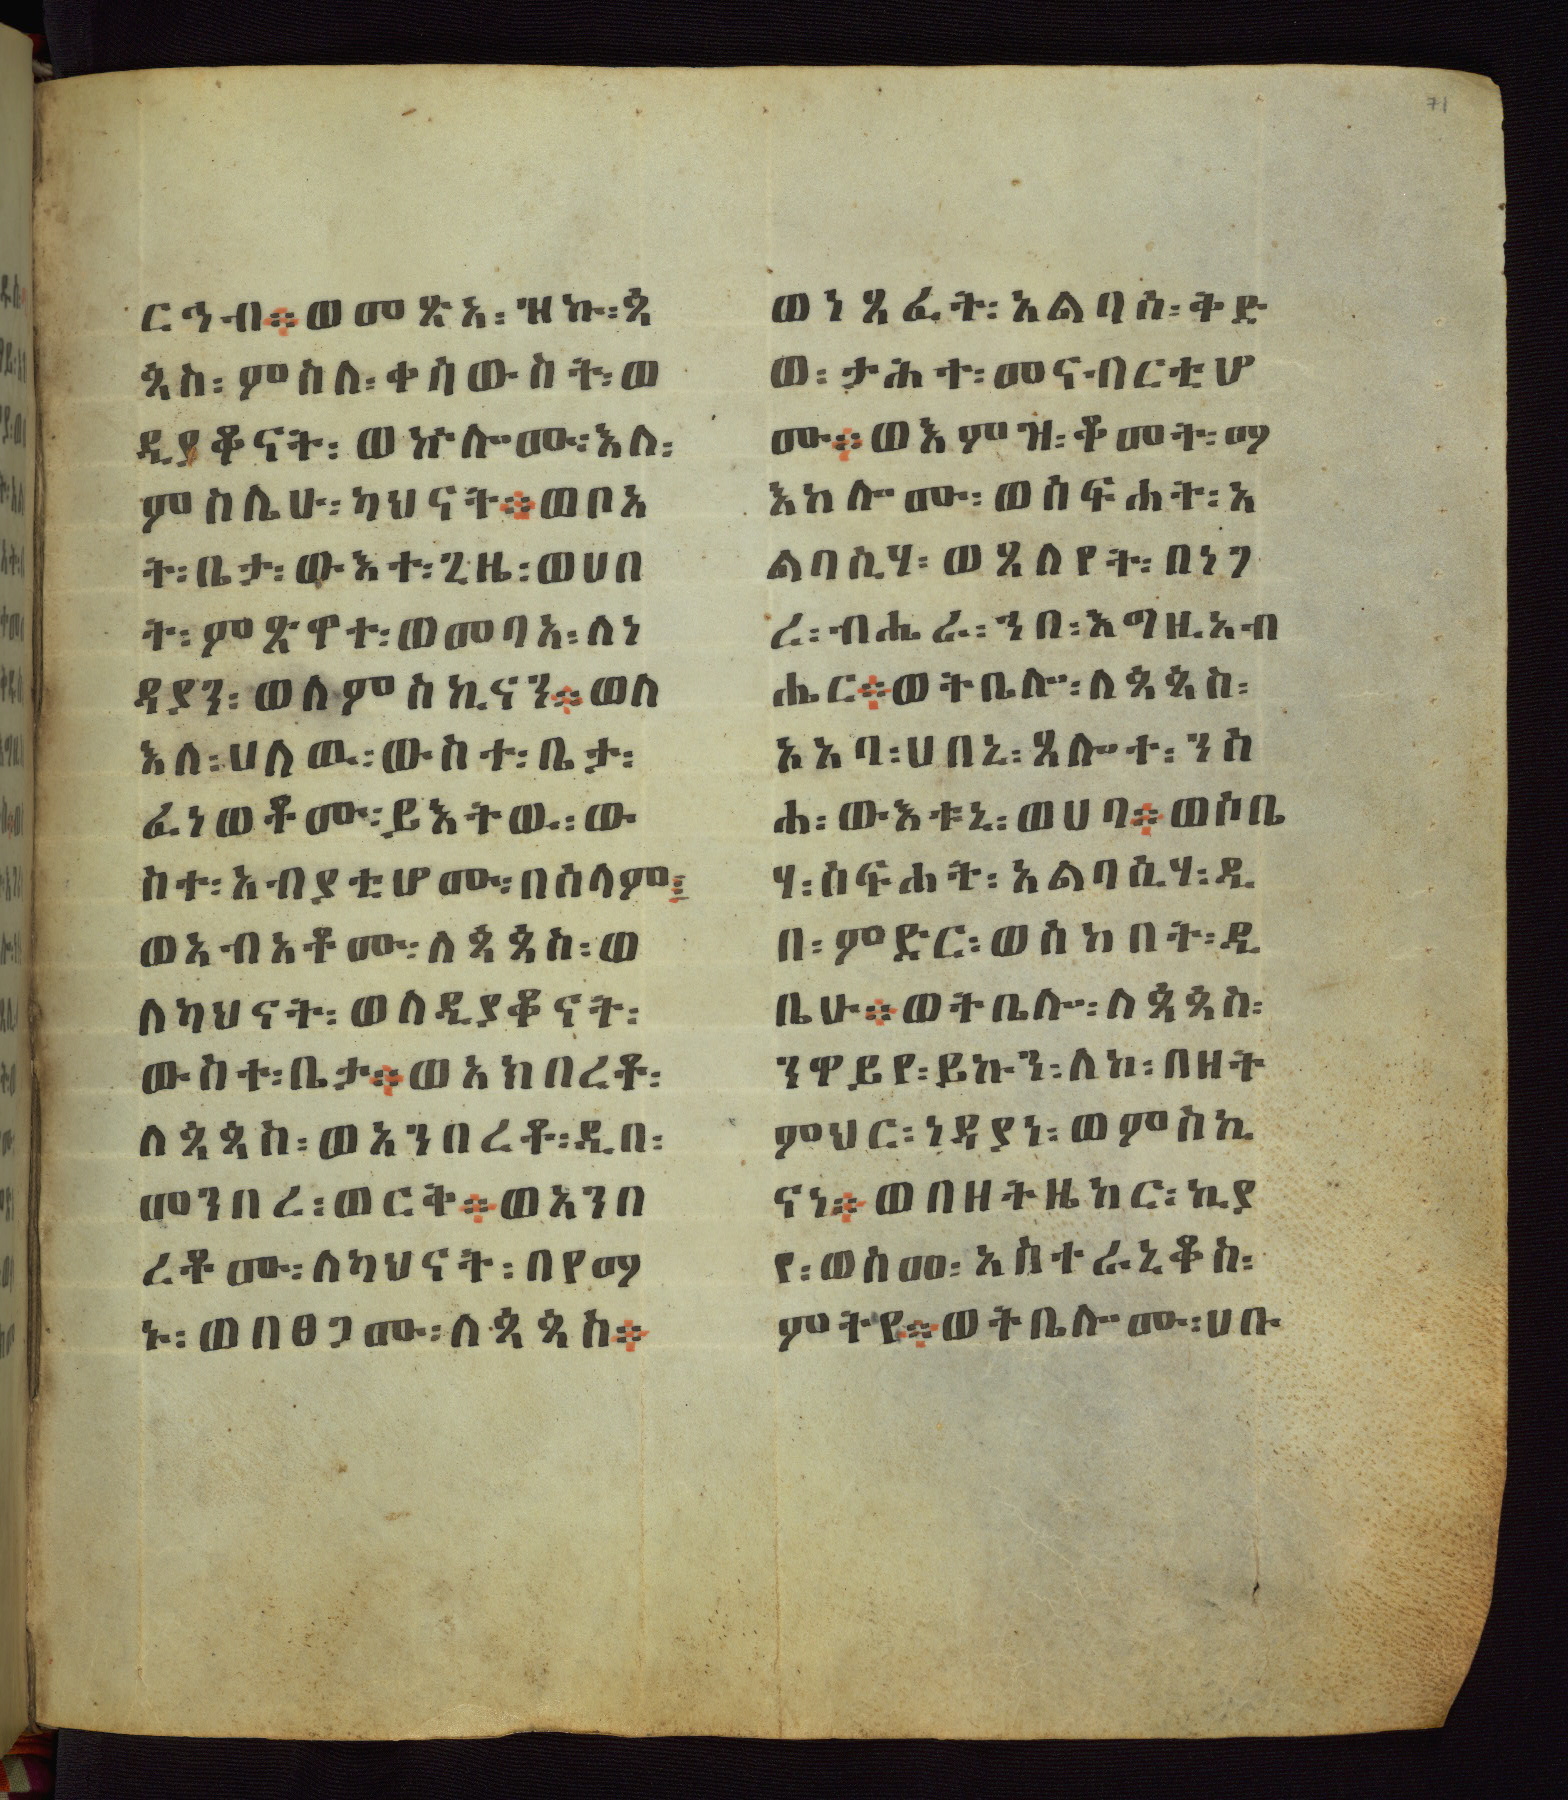 71
ርኅብ፨ወመጽአ፡ዝኩ፡ጳ
ጳስ፡ምስለ፡ቀሳውስት፡ወ
ዲያቆናት፡ወኵሎሙ፡እለ፡
ምስሌሁ፡ካህናት፨ወቦአ
ት፡ቤታ፡ውእተ፡ጊዜ፡ወሀበ
ት፡ምጽዋተ፡ወመባአ፡ለነ
ዳያን፡ወለምስኪናን፨ወለ
እለ፡ሀለዉ፡ውስተ፡ቤታ፡
ፈነወቶሙ፡ይእትዉ፡ው
ስተ፡አብያቲሆሙ፡በሰላም፡
ወአብአቶሙ፡ለጳጳስ፡ወ
ለካህናት፡ወለዲያቆናት፡
ውስተ፡ቤታ፨ወአክበረቶ፡
ለጳጳስ፡ወአንበረቶ፡ዲበ፡
መንበረ፡ወርቅ፨ወአንበ
ረቶሙ፡ለካህናት፡በየማ
ኑ፡ወበፀጋሙ፡ለጳጳስ፨
ወነጺፈት፡አልባሰ፡ቅድ
ወ፡ታሕተ፡መናብርቲሆ
ሙ፨ወእምዝ፡ቆመት፡ማ
እከሎሙ፡ወሰፍሐት፡አ
ልባሲሃ፡ወጸለየት፡በነገ
ረ፡ብሔራ፡ኀበ፡እግዚአብ
ሔር፨ወትቤሎ፡ለጳጳስ፡
አአባ፡ሀበኒ፡ጸሎተ፡ንስ
ሐ፡ውእቱኒ፡ወሀባ፨ወሶቤ
ሃ፡ሰፍሐት፡አልባሲሃ፡ዲ
በ፡ምድር፡ወሰከበት፡ዲ
ቤሁ፨ወትቤሎ፡ለጳጳስ፡
ንዋይየ፡ይኩን፡ለከ፡በዘት
ምህር፡ነዳያነ፡ወምስኪ
ናነ፨ወበዘትዜከር፡ኪያ
የ፡ወስመ፡አስተራኒቆስ፡
ምትየ፨ወትቤሎሙ፡ሀቡ